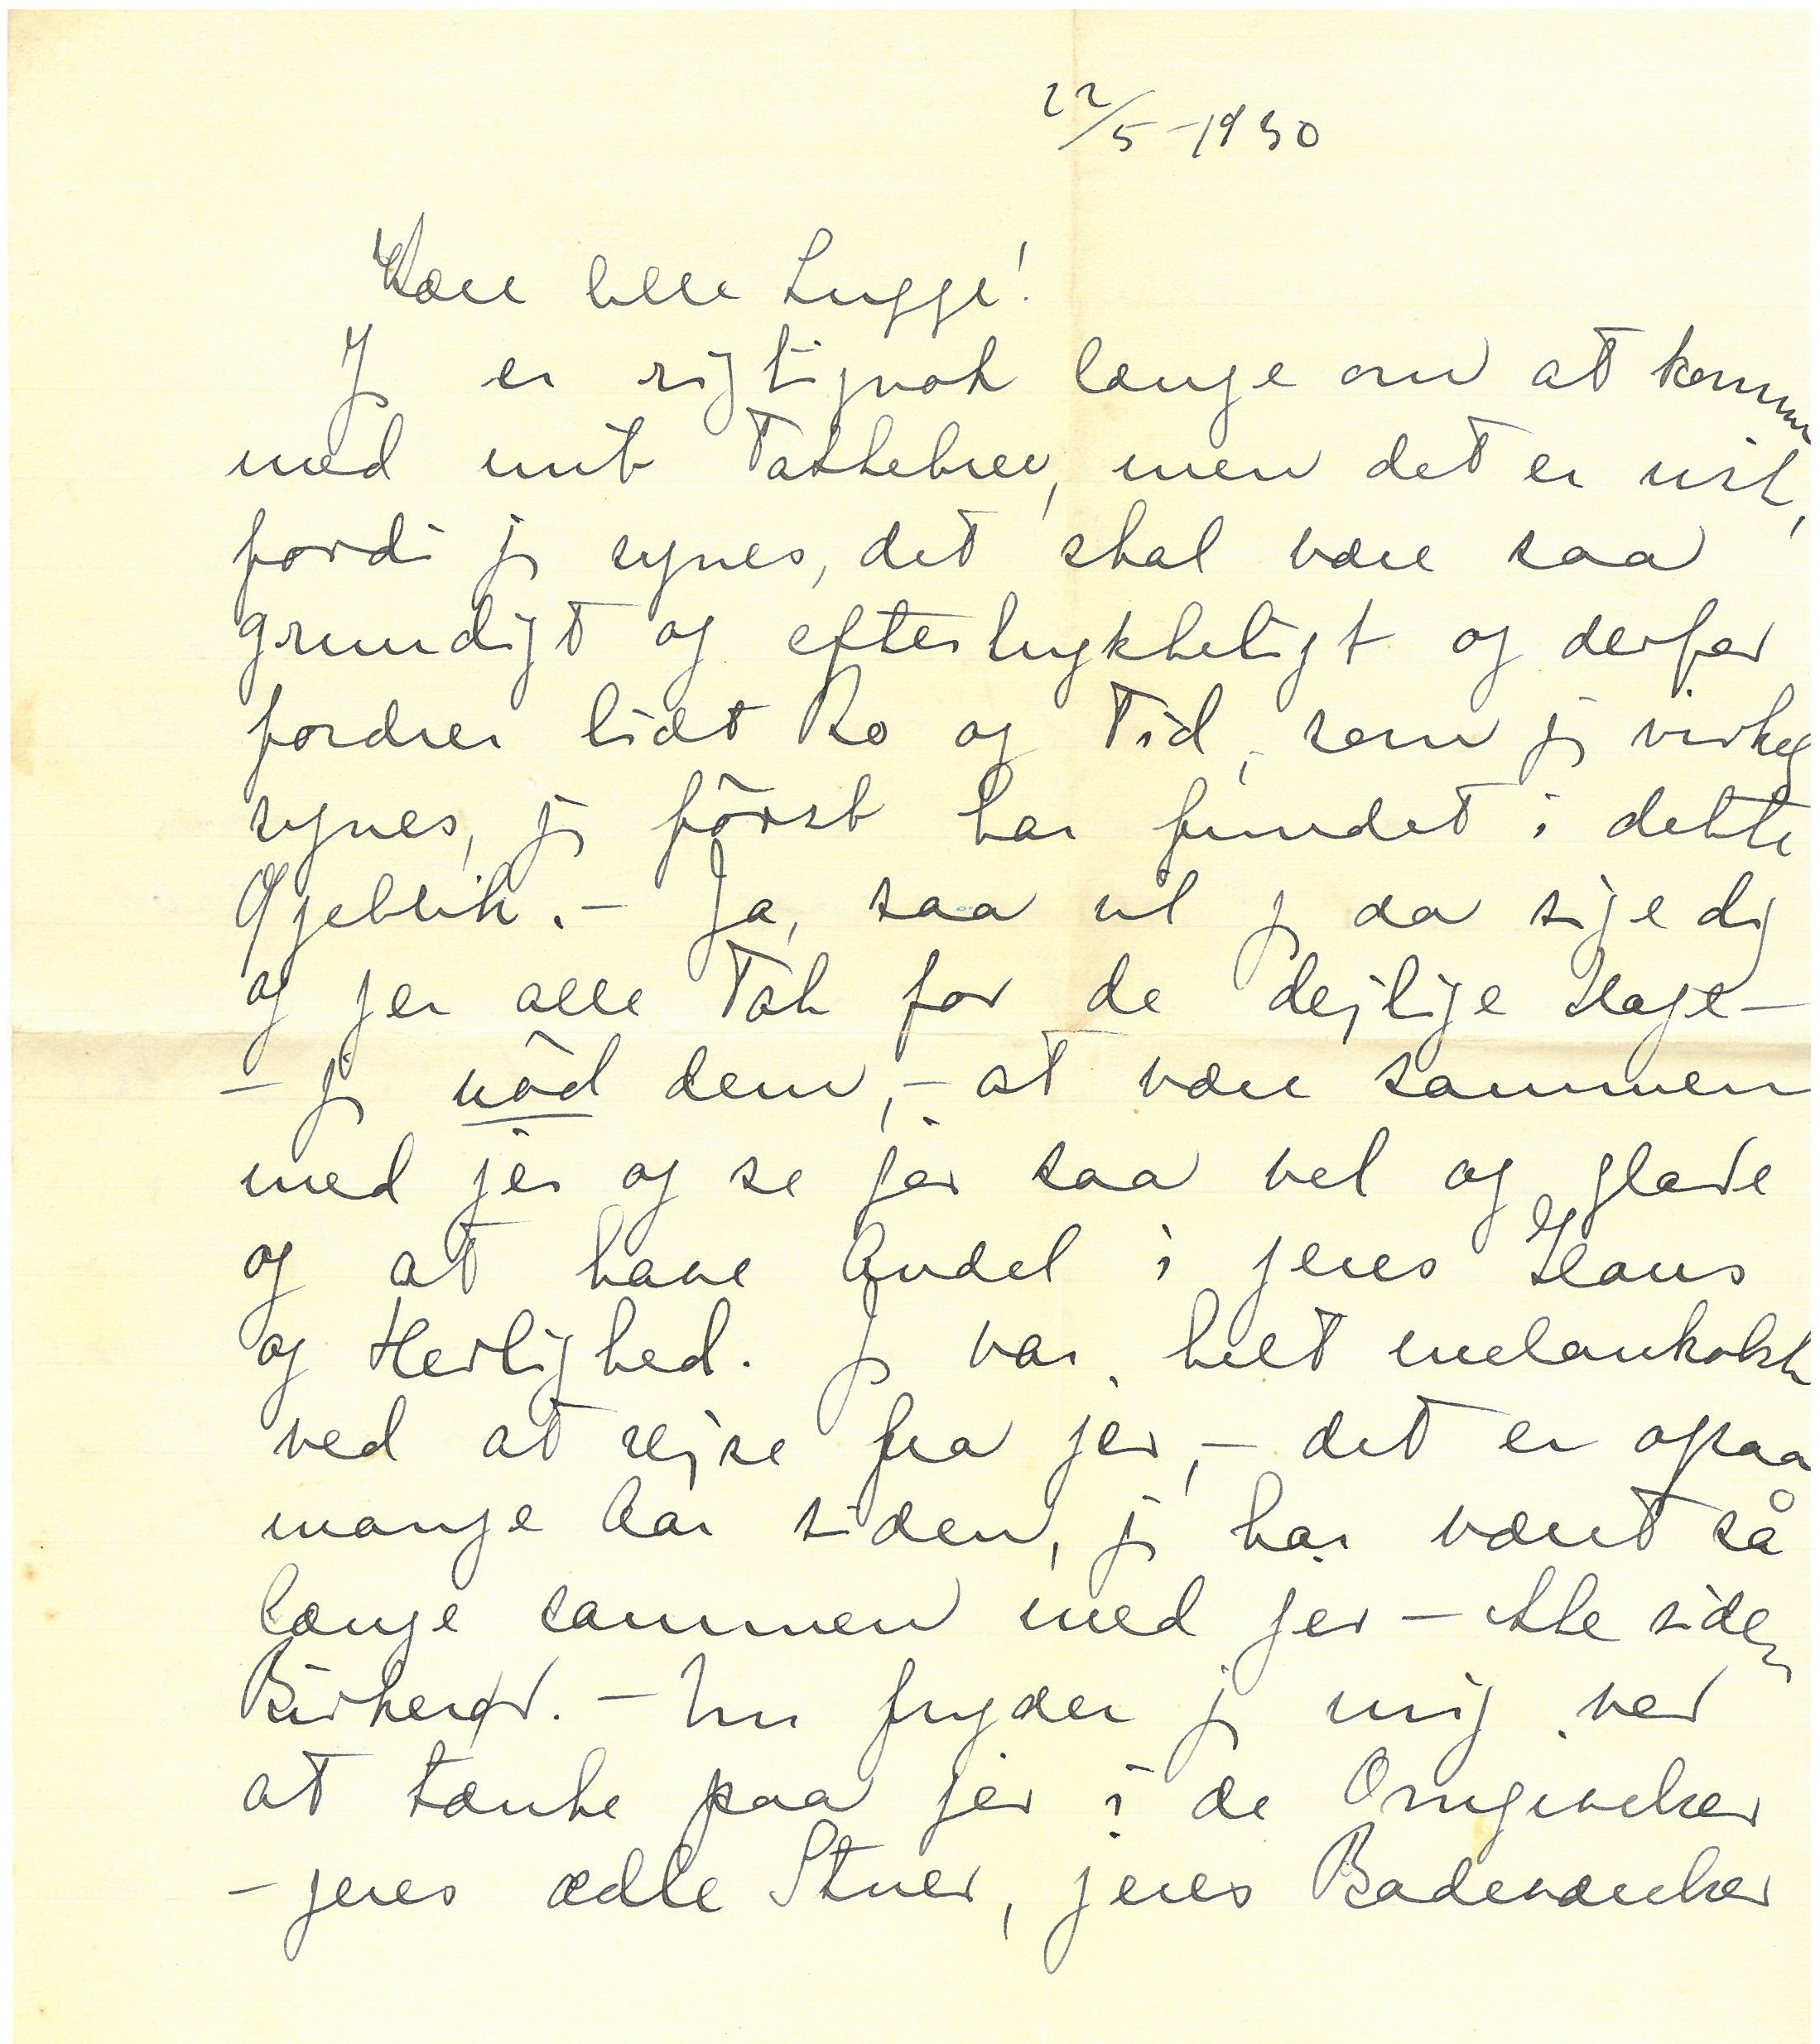 22/5-1930
Kære lille Lugge!
Jg er rigtignok længe om at komme
med mit Takkebrev, men det er vist,
fordi jg synes, det skal være saa
grundigt og eftertrykkeligt og derfor
fordrer lidt Ro og Tid, som jg virkelig
synes, jg först har fundet i dette
Øjeblik. - Ja, saa vil jg da sige dig
og jer alle Tak for de dejlige Dage -
- jg nöd dem, - at være sammen
med jer og se jer saa vel og glade
og at have Andel i jeres Haus
og Herlighed. Jg var helt melankolsk
ved at rejse fra jer, - det er ogsaa
mange Aar siden, jg har været så
længe sammen med jer - ikke siden
Birkerød. - Nu fryder jg mig ved
at tænke paa jer i de Omgivelser
- jeres ædle Stuer, jeres Badeværelser